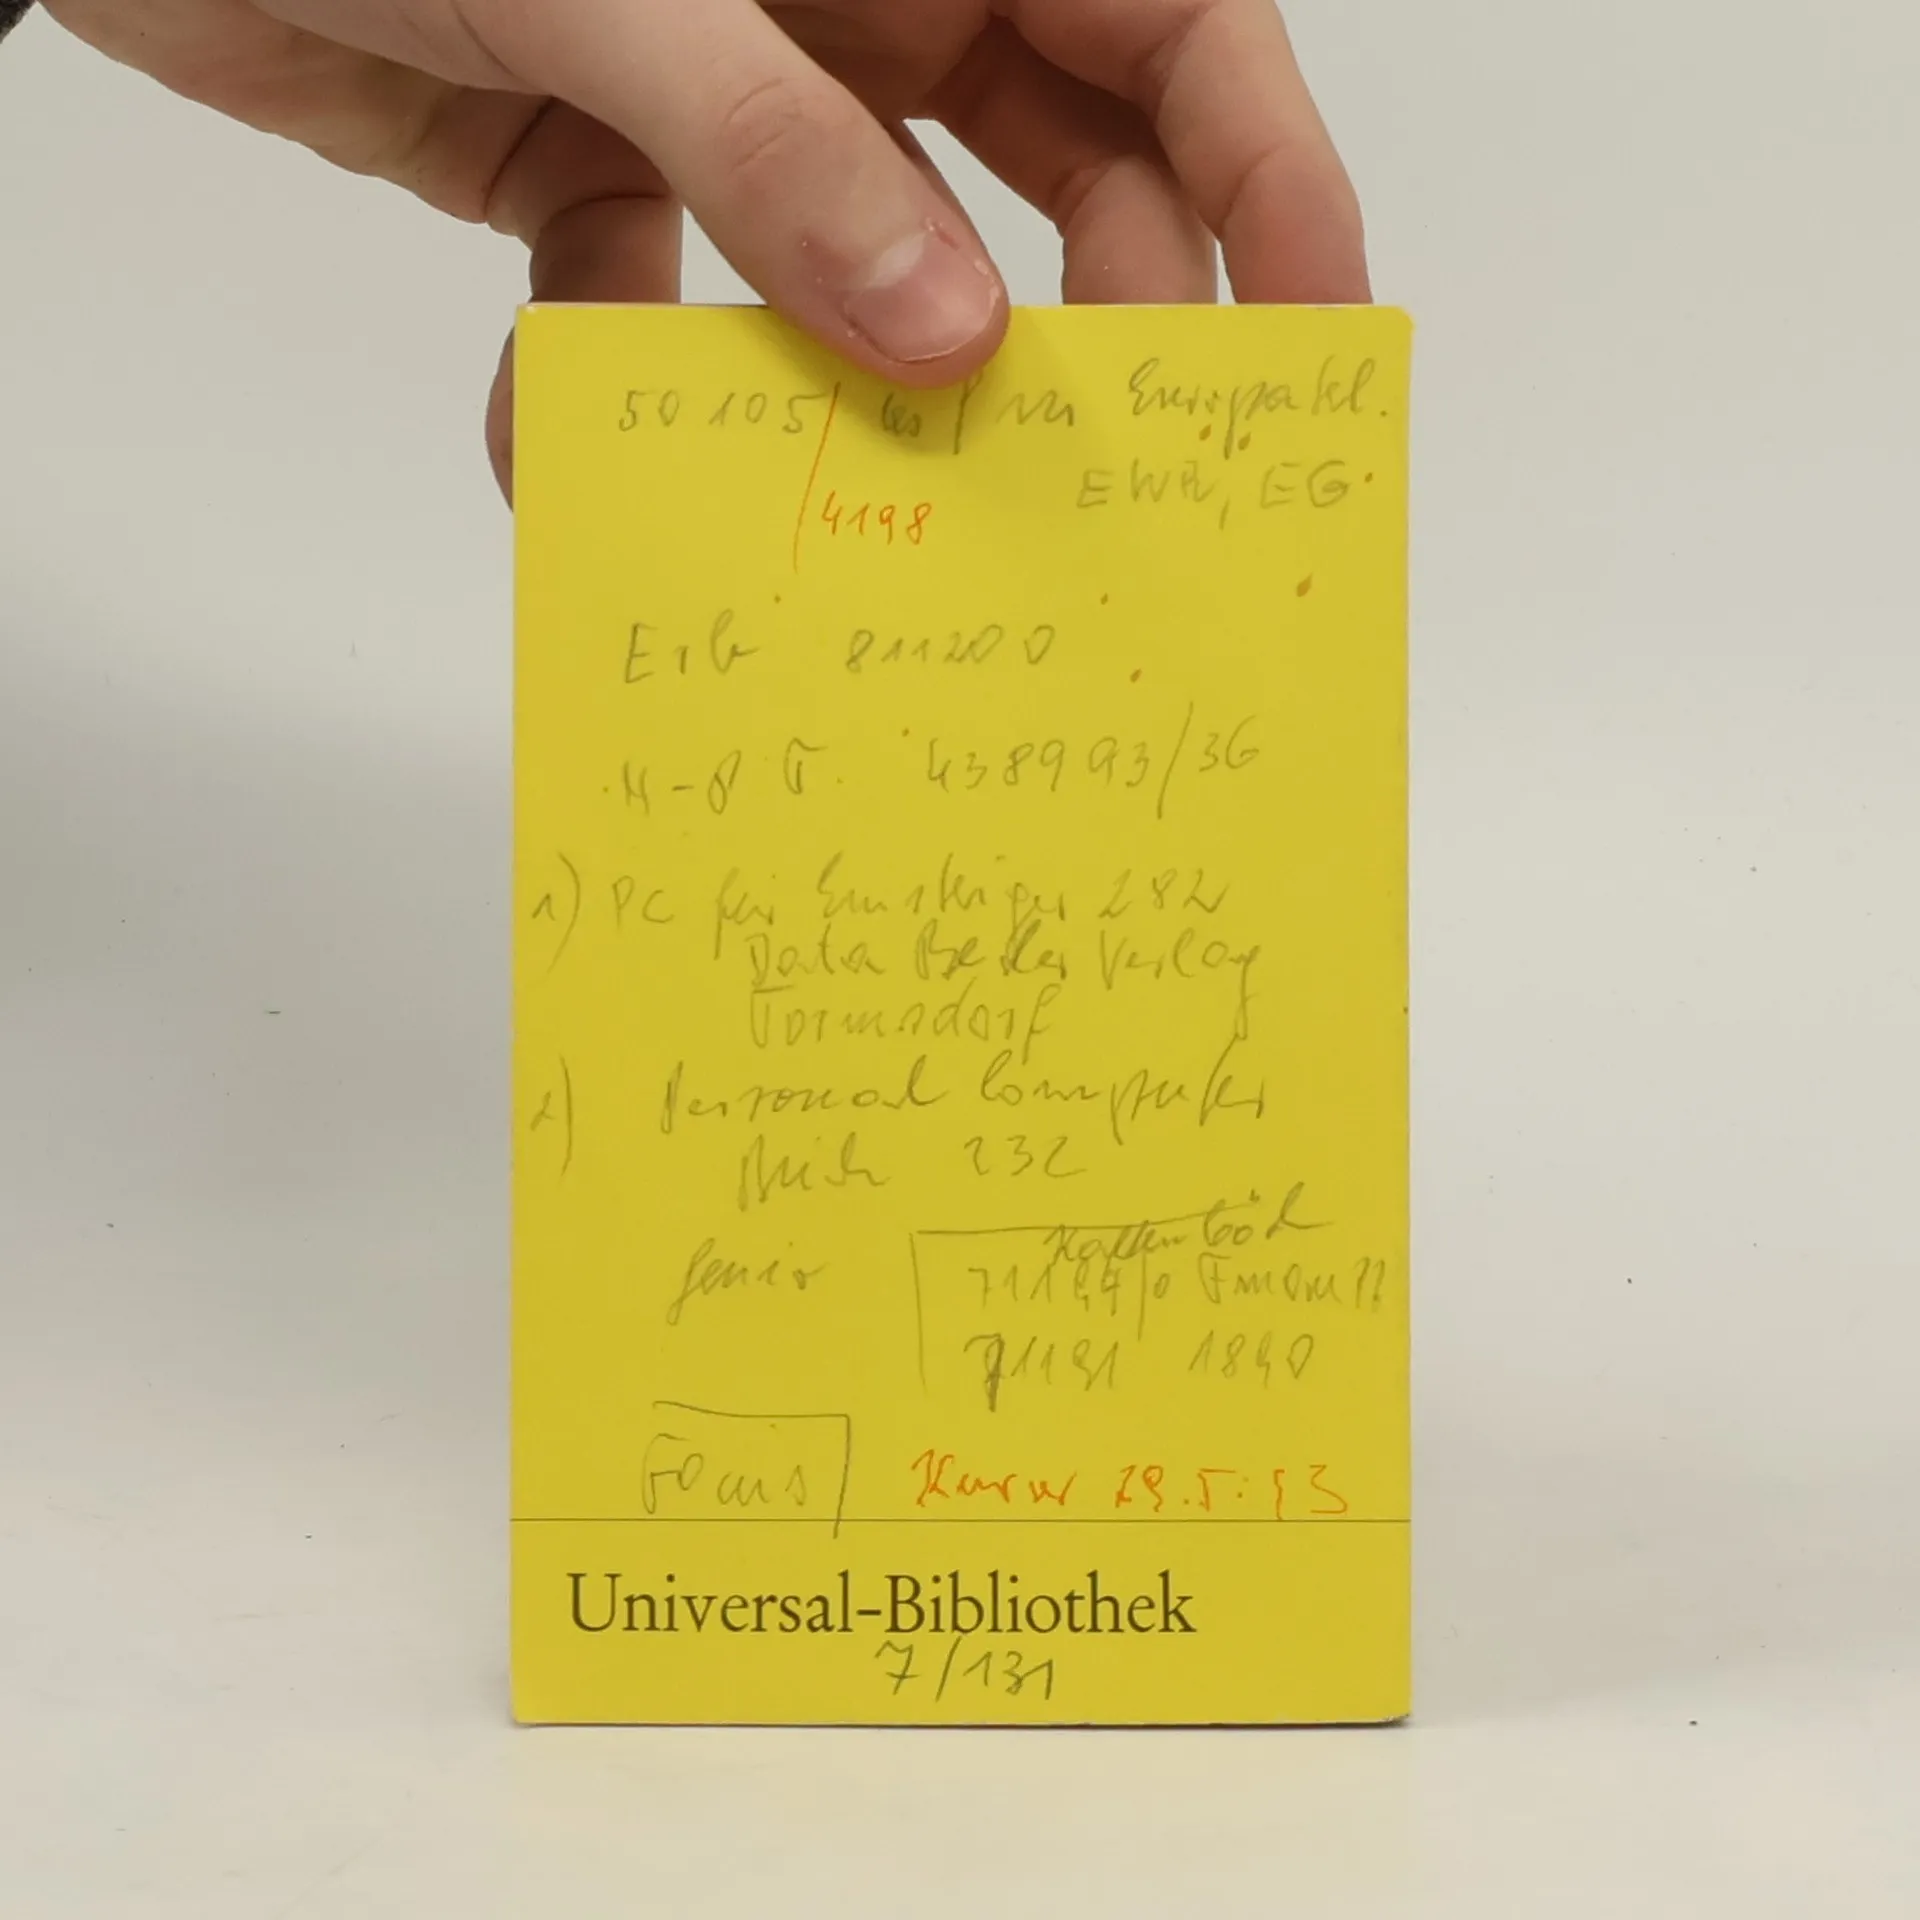 50 105/ im Europakl.
EWR, EG
4198
Erb 811200
438993/36
1) PC für Einsteiger 282
Data Becker Verlag
2) Personal Computer
Buch 232
71191 1890
Focus Kurier 29.5.93
Universal-Bibliothek
7/131